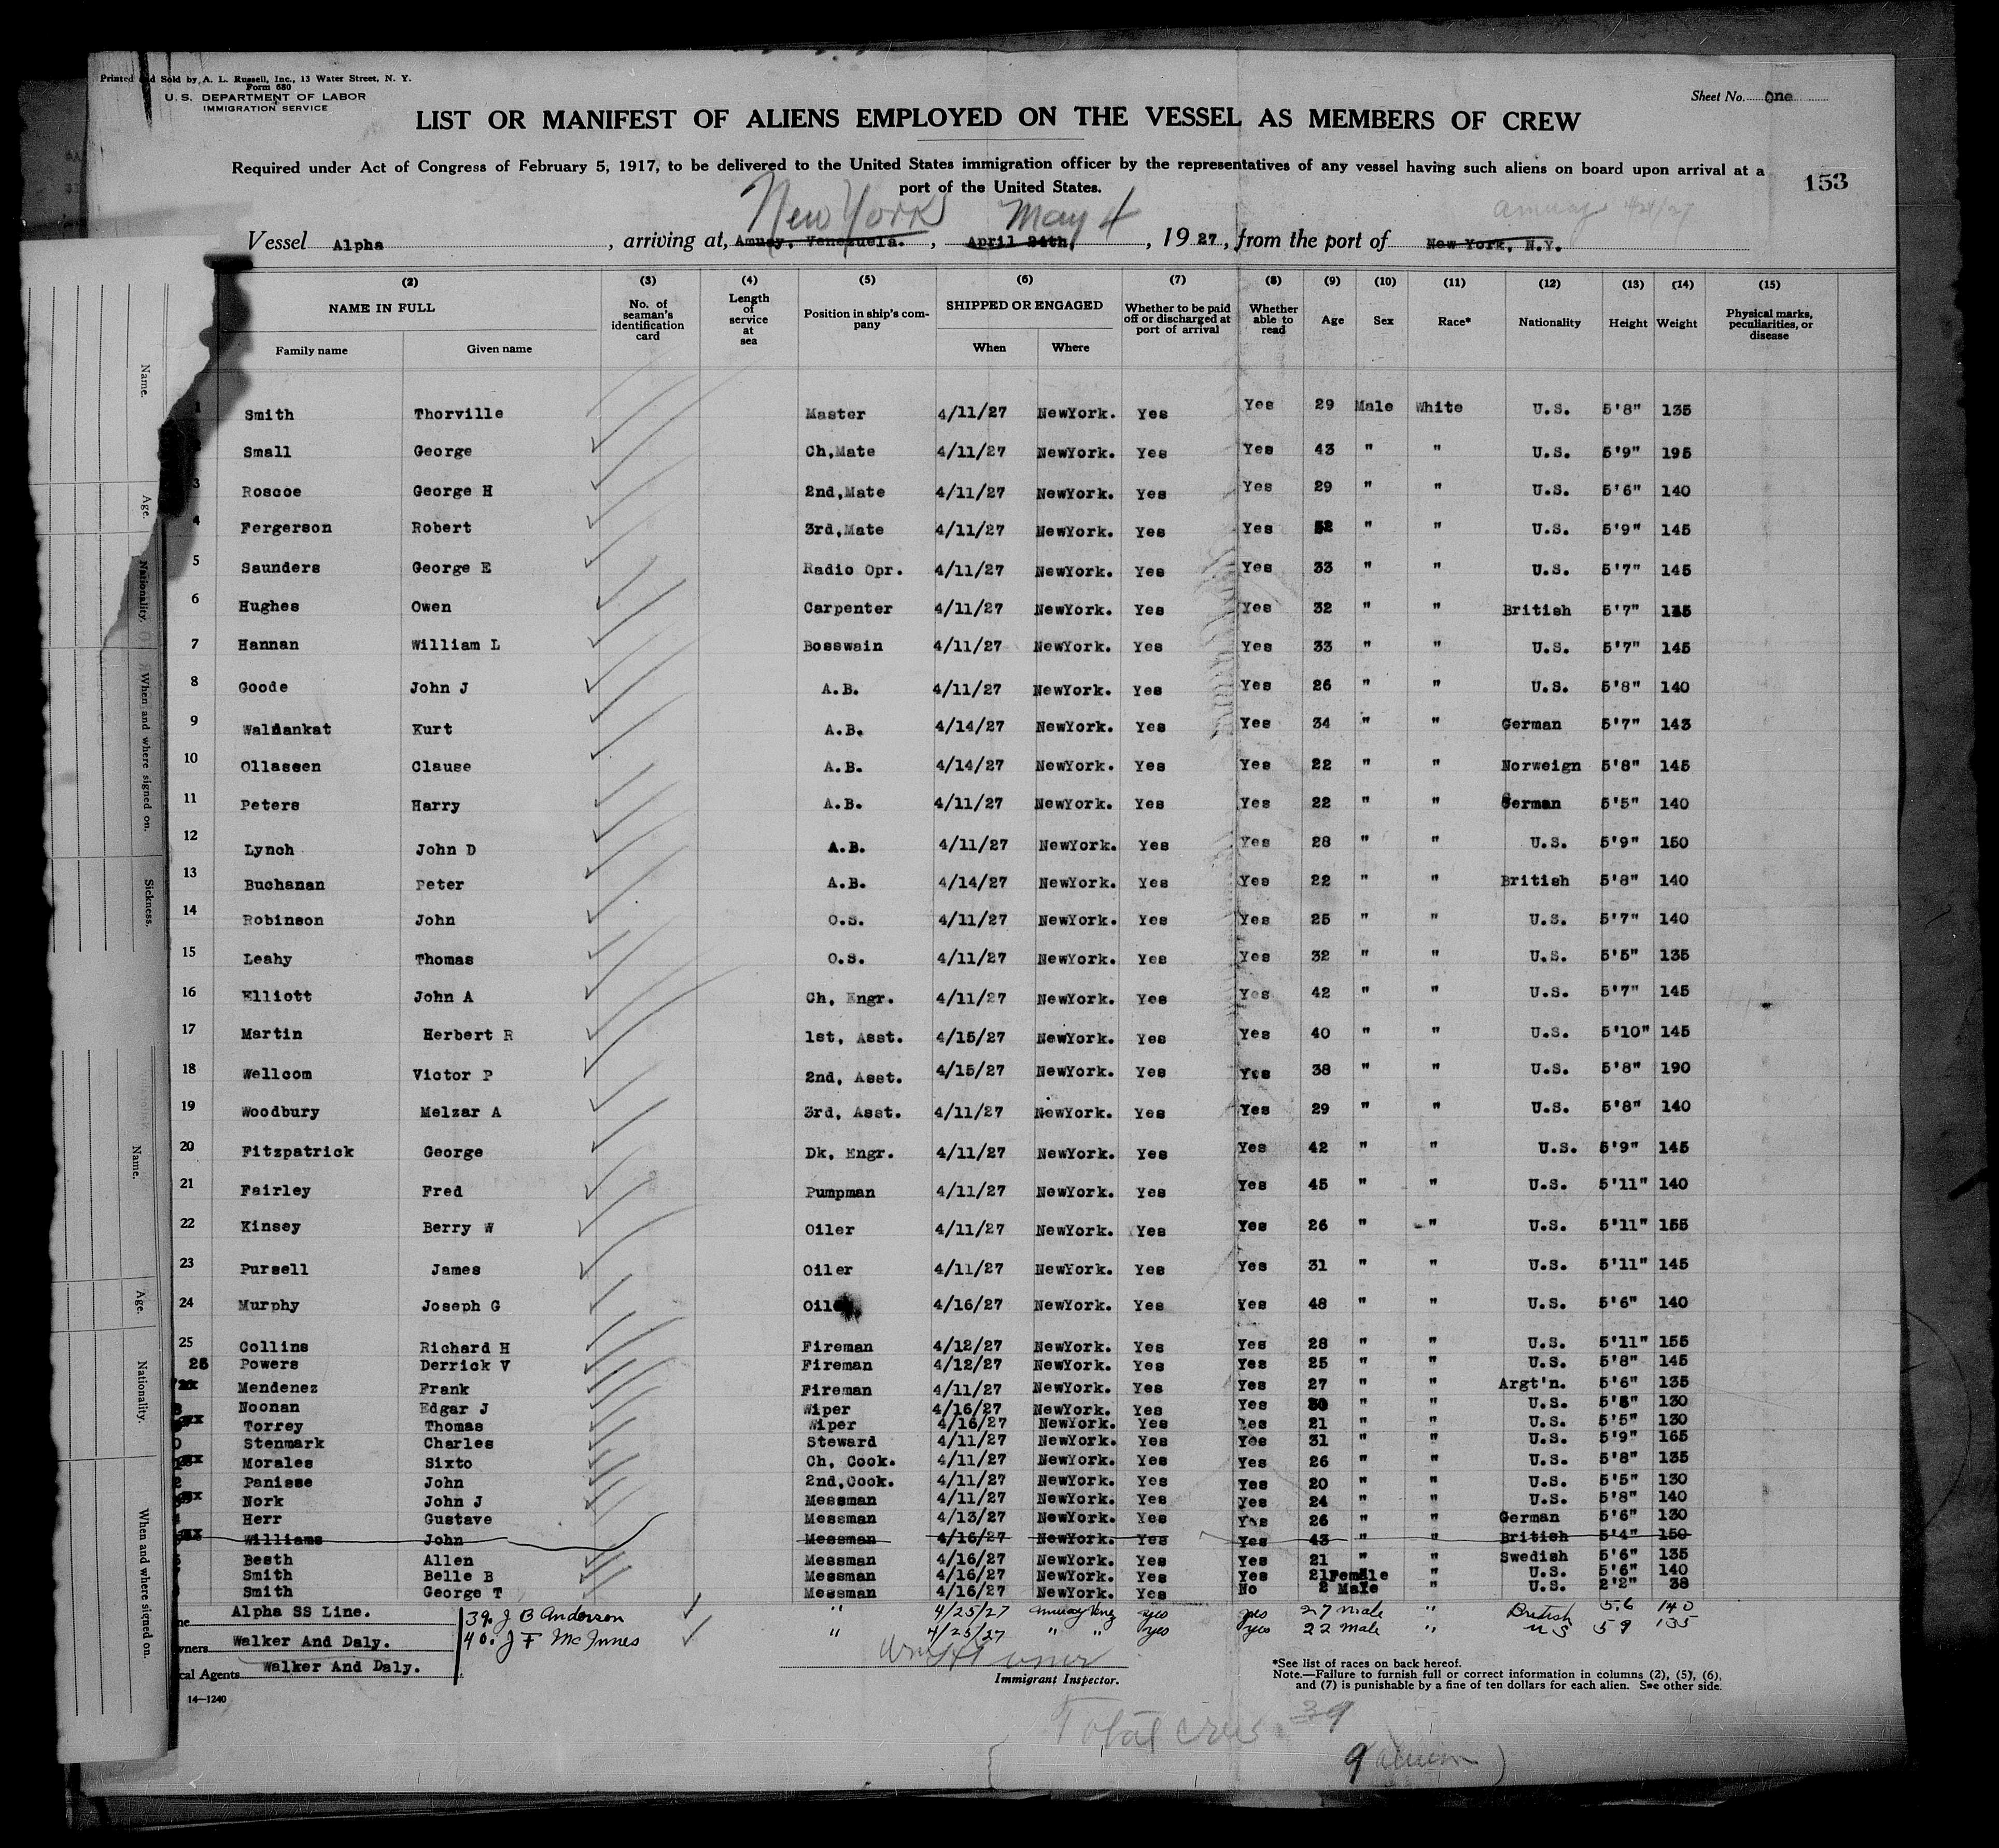 Printed and Sold by A. L. Russell, Inc., 13 Water Street, N. Y.
Form 680
U. S. DEPARTMENT OF LABOR
IMMIGRATION SERVICE
Sheet No. One
LIST OR MANIFEST OF ALIENS EMPLOYED ON THE VESSEL AS MEMBERS OF CREW
Required under Act of Congress of February 5, 1917, to be delivered to the United States immigration officer by the representatives of any vessel having such aliens on board upon arrival at a
port of the United States.
153
New York May 4 Amuay 4/24/27
Vessel Alpha, arriving at, Amuay, Venezuela., April 24th, 1927, from the port of New York, N.Y.
(2) (3) (4) (5) (6) (7) (8) (9) (10) (11) (12) (13) (14) (15)
NAME IN FULL No. of seaman's identification card Length of service at sea Position in ship's company SHIPPED OR ENGAGED Whether to be paid off or discharged at port of arrival Whether able to read Age Sex Race* Nationality Height Weight Physical marks, peculiarities, or disease
Family name Given name When Where
1 Smith Thorville Master 4/11/27 NewYork. Yes Yes 29 Male White U.S. 5'8" 135
Small George Ch,Mate 4/11/27 NewYork. Yes Yes 43 " " U.S. 5'9" 195
3 Roscoe George H 2nd,Mate 4/11/27 NewYork. Yes Yes 29 " " U.S. 5'6" 140
4 Fergerson Robert 3rd,Mate 4/11/27 NewYork. Yes Yes 52 " " U.S. 5'9" 145
5 Saunders George E Radio Opr. 4/11/27 NewYork. Yes Yes 33 " " U.S. 5'7" 145
6 Hughes Owen Carpenter 4/11/27 NewYork. Yes Yes 32 " " British 5'7" 135
7 Hannan William L Bosswain 4/11/27 NewYork. Yes Yes 33 " " U.S. 5'7" 145
8 Goode John J A.B. 4/11/27 NewYork. Yes Yes 26 " " U.S. 5'8" 140
9 Waldankat Kurt A.B. 4/14/27 NewYork. Yes Yes 34 " " German 5'7" 143
10 Ollassen Clause A.B. 4/14/27 NewYork. Yes Yes 22 " " Norweign 5'8" 145
11 Peters Harry A.B. 4/11/27 NewYork. Yes Yes 22 " " German 5'5" 140
12 Lynch John D A.B. 4/11/27 NewYork. Yes Yes 28 " " U.S. 5'9" 150
13 Buchanan Peter A.B. 4/14/27 NewYork. Yes Yes 22 " " British 5'8" 140
14 Robinson John O.S. 4/11/27 NewYork. Yes Yes 25 " " U.S. 5'7" 140
15 Leahy Thomas O.S. 4/11/27 NewYork. Yes Yes 32 " " U.S. 5'5" 135
16 Elliott John A Ch, Engr. 4/11/27 NewYork. Yes Yes 42 " " U.S. 5'7" 145
17 Martin Herbert R 1st, Asst. 4/15/27 NewYork. Yes Yes 40 " " U.S. 5'10" 145
18 Wellcom Victor P 2nd, Asst. 4/15/27 NewYork. Yes Yes 38 " " U.S. 5'8" 190
19 Woodbury Melzar A 3rd, Asst. 4/11/27 NewYork. Yes Yes 29 " " U.S. 5'8" 140
20 Fitzpatrick George Dk, Engr. 4/11/27 NewYork. Yes Yes 42 " " U.S. 5'9" 145
21 Fairley Fred Pumpman 4/11/27 NewYork. Yes Yes 45 " " U.S. 5'11" 140
22 Kinsey Berry W Oiler 4/11/27 NewYork. Yes Yes 26 " " U.S. 5'11" 155
23 Pursell James Oiler 4/11/27 NewYork. Yes Yes 31 " " U.S. 5'11" 145
24 Murphy Joseph G Oiler 4/16/27 NewYork. Yes Yes 48 " " U.S. 5'6" 140
25 Collins Richard H Fireman 4/12/27 NewYork. Yes Yes 28 " " U.S. 5'11" 155
26 Powers Derrick V Fireman 4/12/27 NewYork. Yes Yes 25 " " U.S. 5'8" 145
Mendenez Frank Fireman 4/11/27 NewYork. Yes Yes 27 " " Argt'n. 5'6" 135
Noonan Edgar J Wiper 4/16/27 NewYork. Yes Yes 30 " " U.S. 5'8" 130
Torrey Thomas Wiper 4/16/27 NewYork. Yes Yes 21 " " U.S. 5'5" 130
Stenmark Charles Steward 4/11/27 NewYork. Yes Yes 31 " " U.S. 5'9" 165
Morales Sixto Ch, Cook. 4/11/27 NewYork. Yes Yes 26 " " U.S. 5'8" 135
Panisse John 2nd,Cook. 4/11/27 NewYork. Yes Yes 20 " " U.S. 5'5" 130
Nork John J Messman 4/11/27 NewYork. Yes Yes 24 " " U.S. 5'8" 140
Herr Gustave Messman 4/13/27 NewYork. Yes Yes 26 " " German 5'6" 130
Williams John Messman 4/16/27 NewYork. Yes Yes 43 " " British 5'4" 150
Besth Allen Messman 4/16/27 NewYork. Yes Yes 21 " " Swedish 5'6" 135
Smith Belle B Messman 4/16/27 NewYork. Yes Yes 21 Female " U.S. 5'6" 140
Smith George T Messman 4/16/27 NewYork. Yes No 2 Male " U.S. 2'2" 38
Alpha SS Line. 39. J B Anderson " 4/25/27 Amuay Venz yes yes 27 male " British 5.6 140
Walker And Daly. 40. J F McInnes " 4/25/27 " " yes yes 22 male " U S 5 9 135
cal Agents Walker And Daly.
Immigrant Inspector.
*See list of races on back hereof.
Note.—Failure to furnish full or correct information in columns (2), (5), (6),
and (7) is punishable by a fine of ten dollars for each alien. See other side.
14—1240
Total crew 39
9 aliens
Name.
Age.
Nationality.
When and where signed on.
Sickness.
Name.
Age.
Nationality.
When and where signed on.